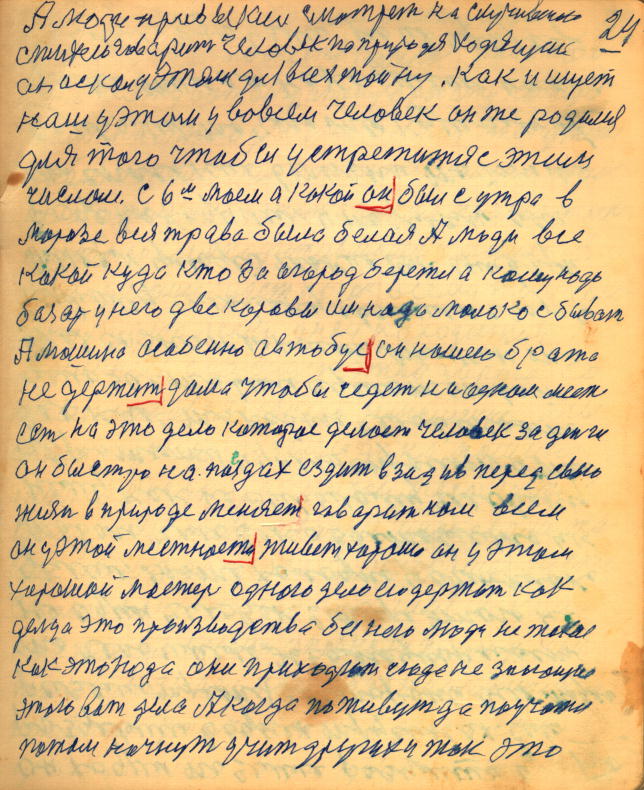 24
А люди привыкли смотрет на случившие
говарит человек по природе ходящий
он искал этим для всех тойну. Как и ищет
наш у этом у вовсем человек он же родился
для того чтобы устретится с этим
числом. с 6м моем а какой он был с утра в
морозе вся трава была белая А люди все
какой куда кто за огород берётся а кому надь
базар у него две коровы им надь молоко сбыват
А машина особенно автобус он нашего брата
не держит дома чтобы седет на одном мест
сот на это дело которое делает человек за денги
он быстро на поездах ездит взад и в перед свою
жизн в природе меняет говарит нам всем
он у этой местности живет хорошо он у этом
хороший мастер одного дело содержат как
делца это производства без него люди не такие
как это нада они приходят сюда не знающие
этого вот дела А когда поживут да поучатся
потом начнут учит других и так это